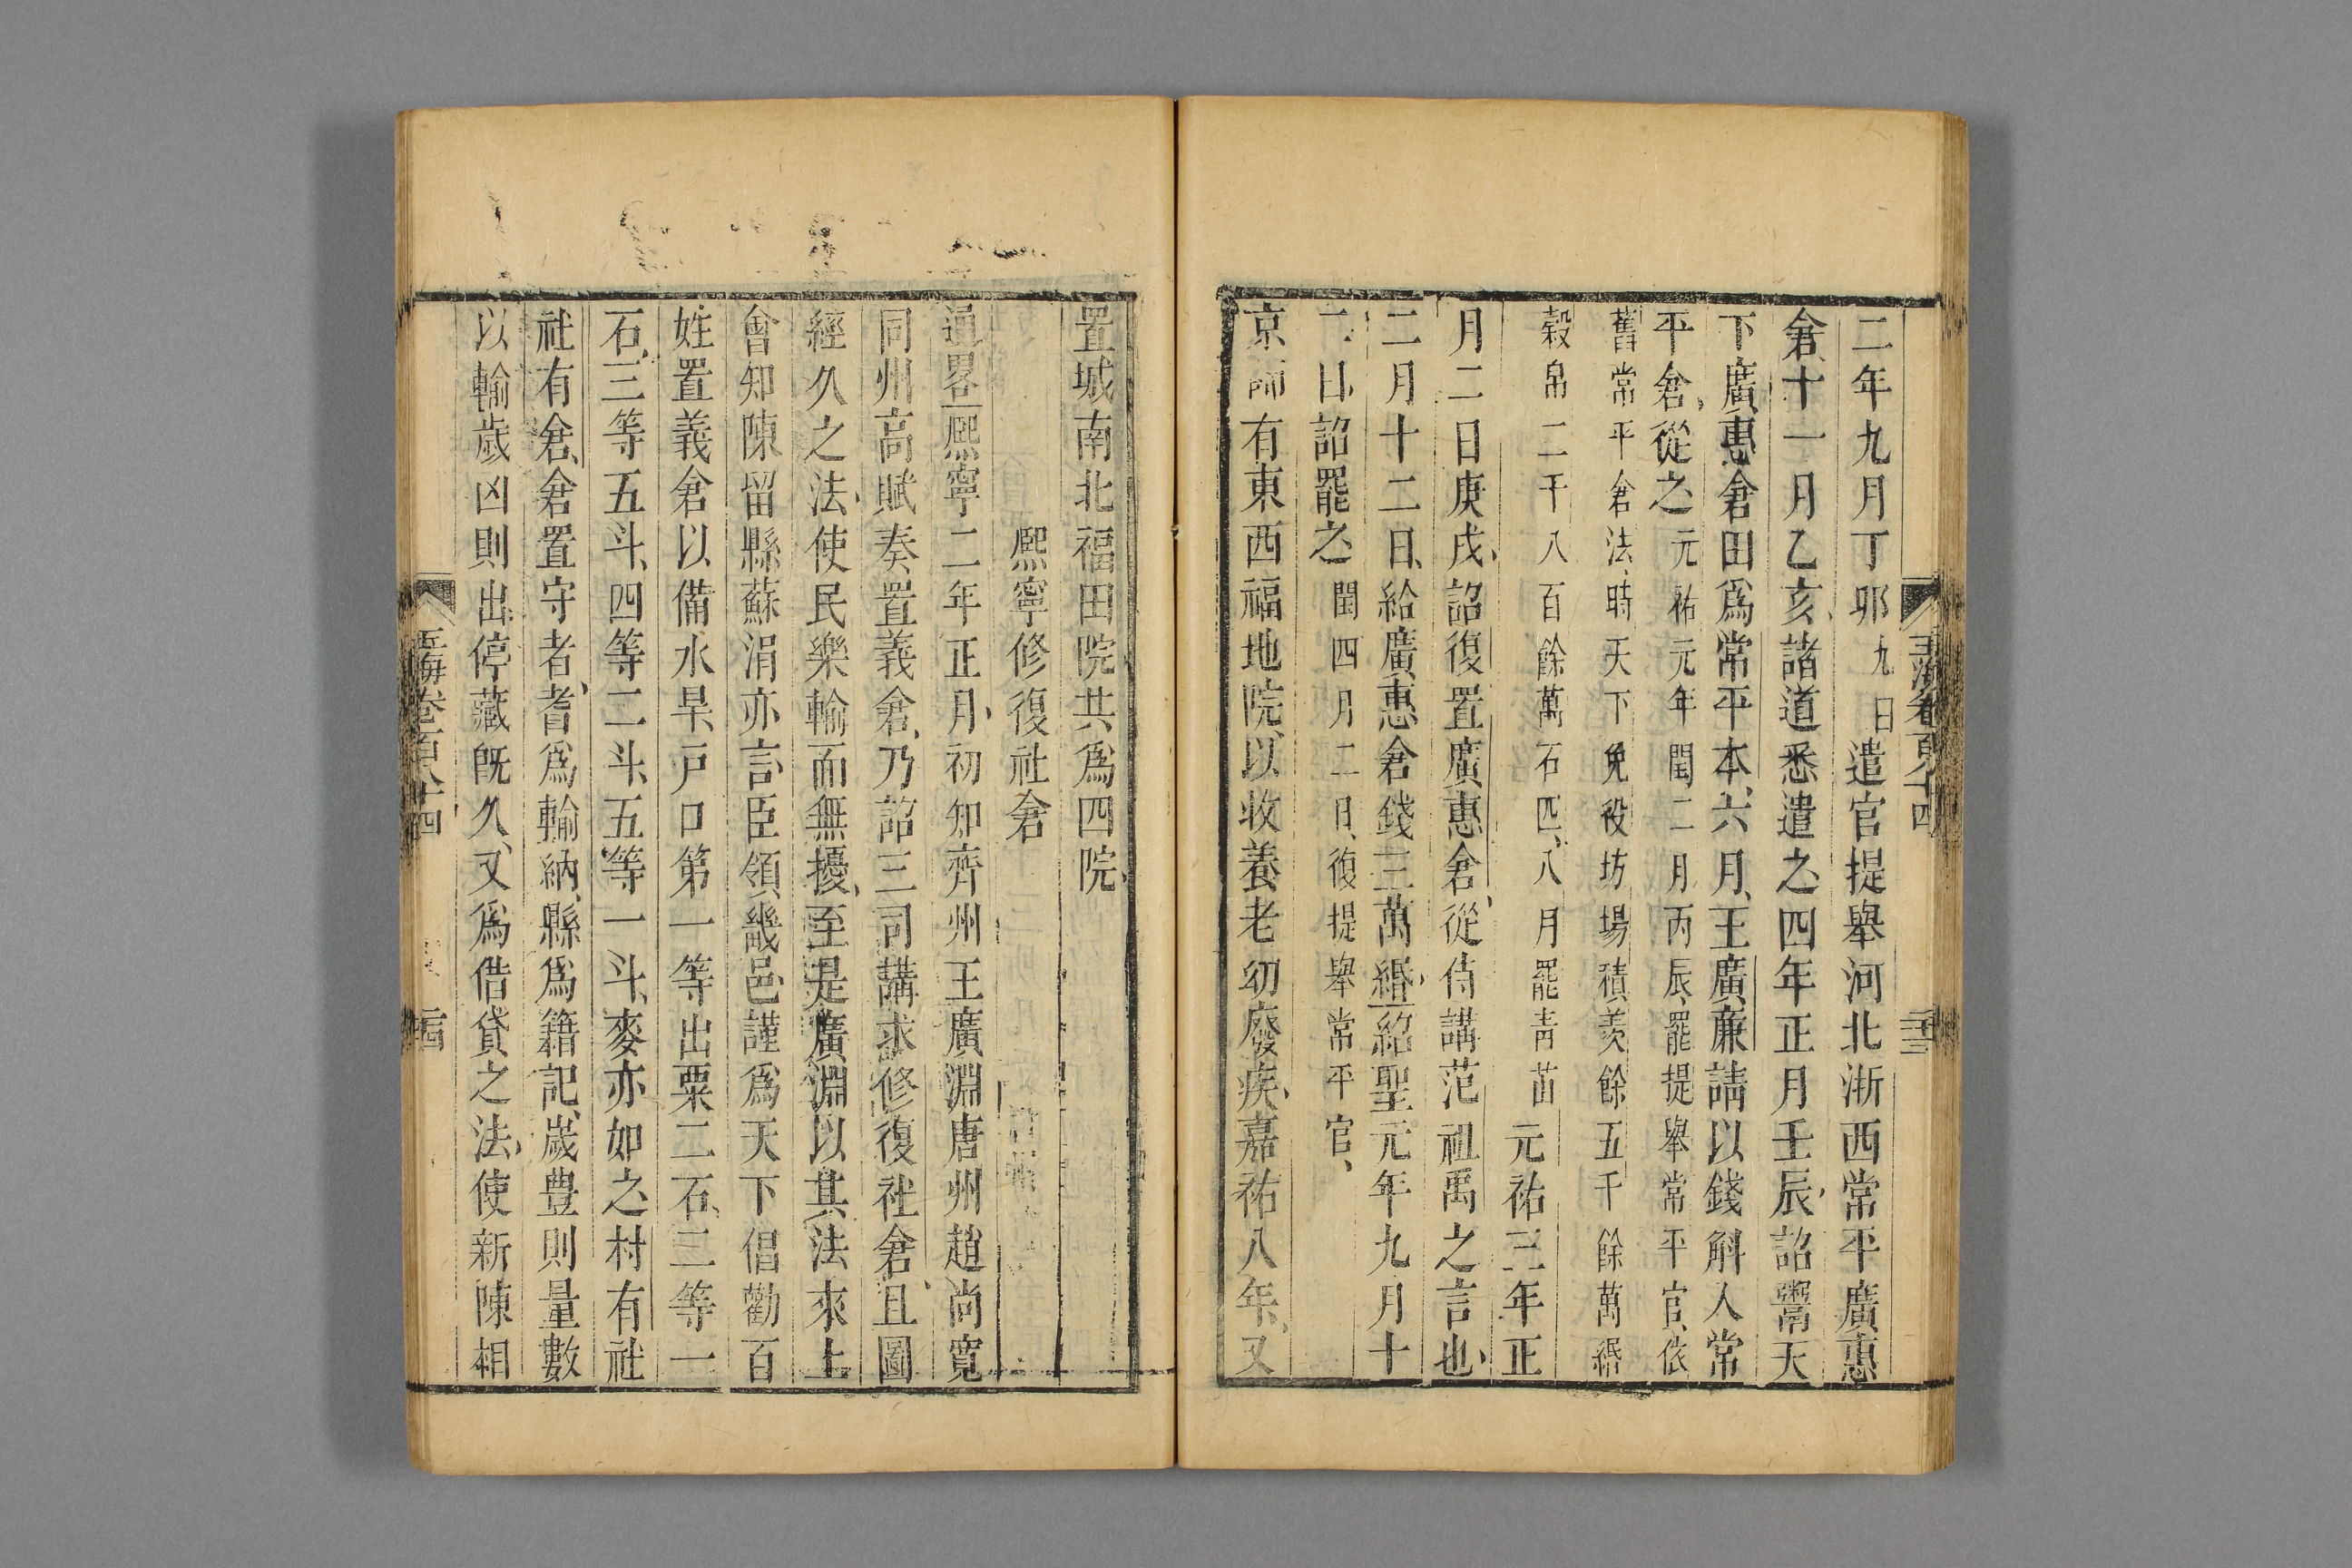 玉海卷百八十四
二年九月丁卯九日遣官提舉河北浙西常平廣惠
倉十一月乙亥諸道悉遣之四年正月壬辰詔鬻天
下廣惠倉田爲常平本六月王廣廉請以錢斛入常
平倉從之元祐元年閏二月丙辰罷提舉常平官依
舊常平倉法時天下免役坊場積羨餘五千餘萬緡
穀帛二千八百餘萬石匹八月罷靑苗元祐三年正
月二日庚戌詔復置廣惠倉從侍講范祖禹之言也
二月十二日給廣惠倉錢三萬緡紹聖元年九月十
二日詔罷之閏四月二日復提舉常平官
京師有東西福地院以收養老幼廢疾嘉祐八年又
置城南北福田院共爲四院
熙寧修復社倉
通畧熙寧二年正月初知齊州王廣淵唐州趙尚寬
同州高賦奏置義倉乃詔三司講求修復社倉且圖
經久之法使民樂輸而無擾至是廣淵以其法來上
會知陳留縣蘇涓亦言臣領畿邑謹爲天下倡勸百
姓置義倉以備水旱戸口第一等出粟二石二等一
石三等五斗四等二斗五等一斗麥亦如之村有社
社有倉倉置守者耆爲輸納縣爲籍記歲豊則量數
以輸歲凶則出停藏既久又爲借貸之法使新陳相
玉海卷百八十四